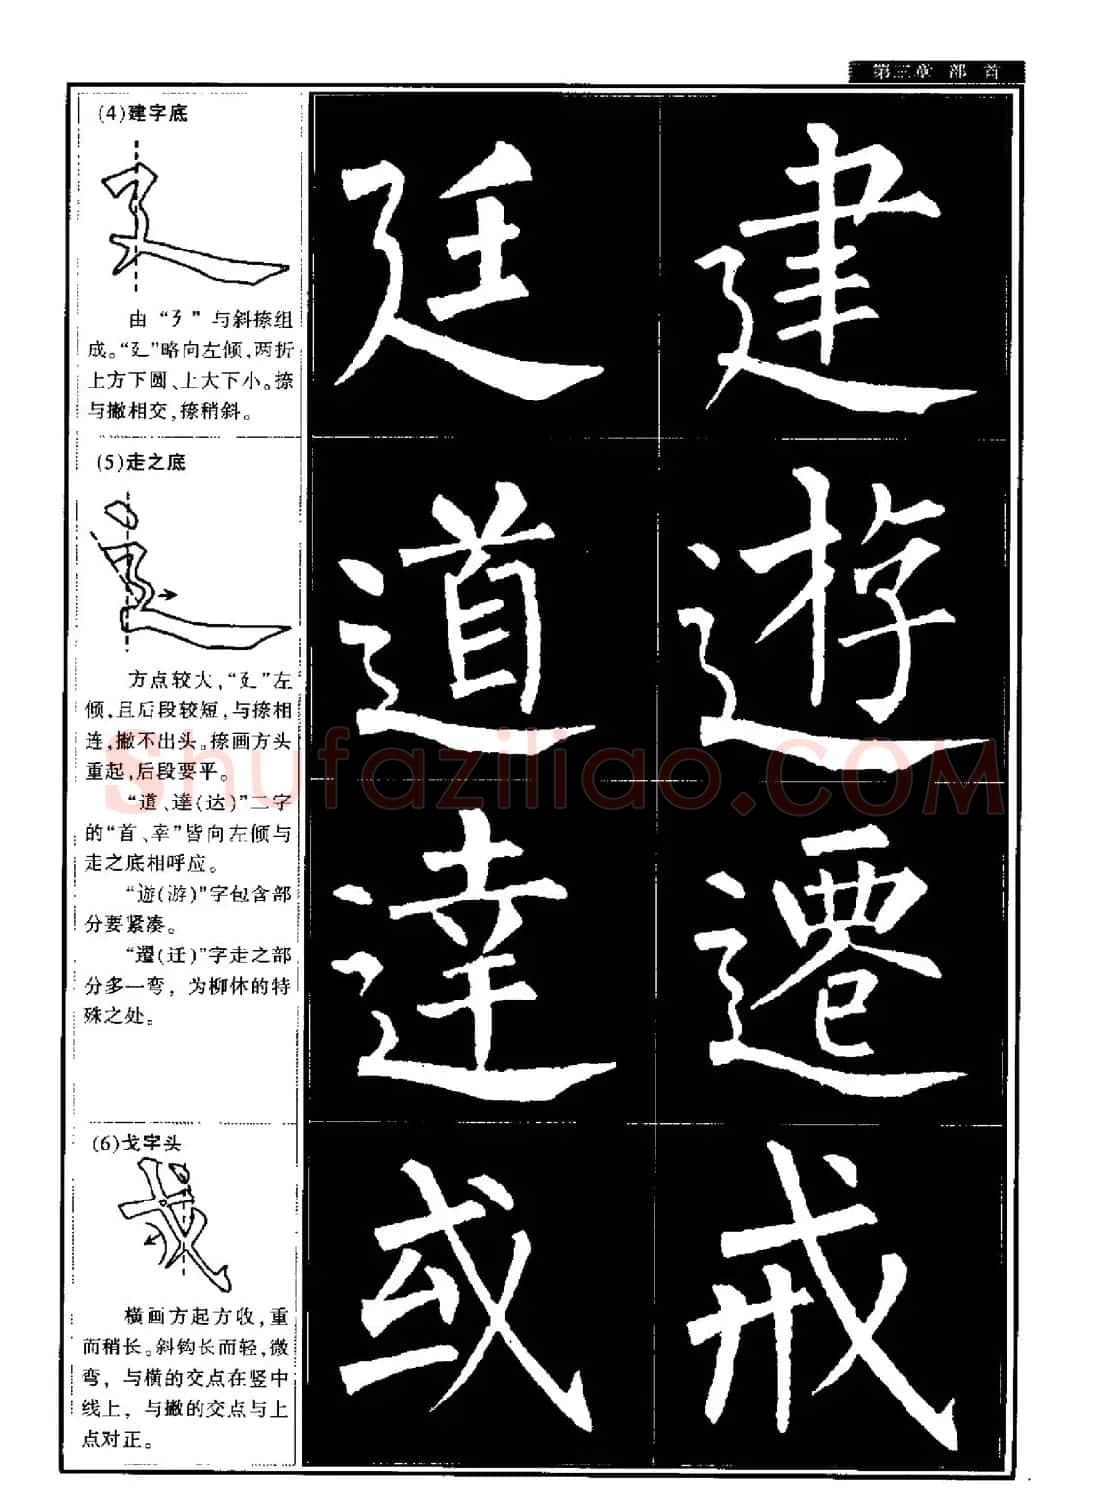 第三章 部 首
(4)建字底
由“㇋”与斜捺组
成。“廴”略向左倾,两折
上方下圆、上大下小。捺
与撇相交,捺稍斜。
廷 建
(5)走之底
方点较大,“廴”左
倾,且后段较短,与捺相
连,撇不出头。捺画方头
重起,后段要平。
“道、達(达)”二字
的“首、幸”皆向左倾与
走之底相呼应。
“遊(游)”字包含部
分要紧凑。
“遷(迁)”字走之部
分多一弯，为柳体的特
殊之处。
道 遊
達 遷
(6)戈字头
横画方起方收,重
而稍长。斜钩长而轻,微
弯，与横的交点在竖中
线上，与撇的交点与上
点对正。
或 戒
Shufaziliao.COM